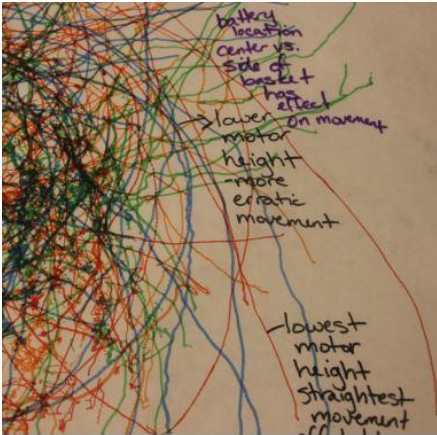 battery
location
center vs.
side of
basket
has
effect
on movement
lower
motor
height
-more
erratic
movement
lowest
motor
height
straightest
movement